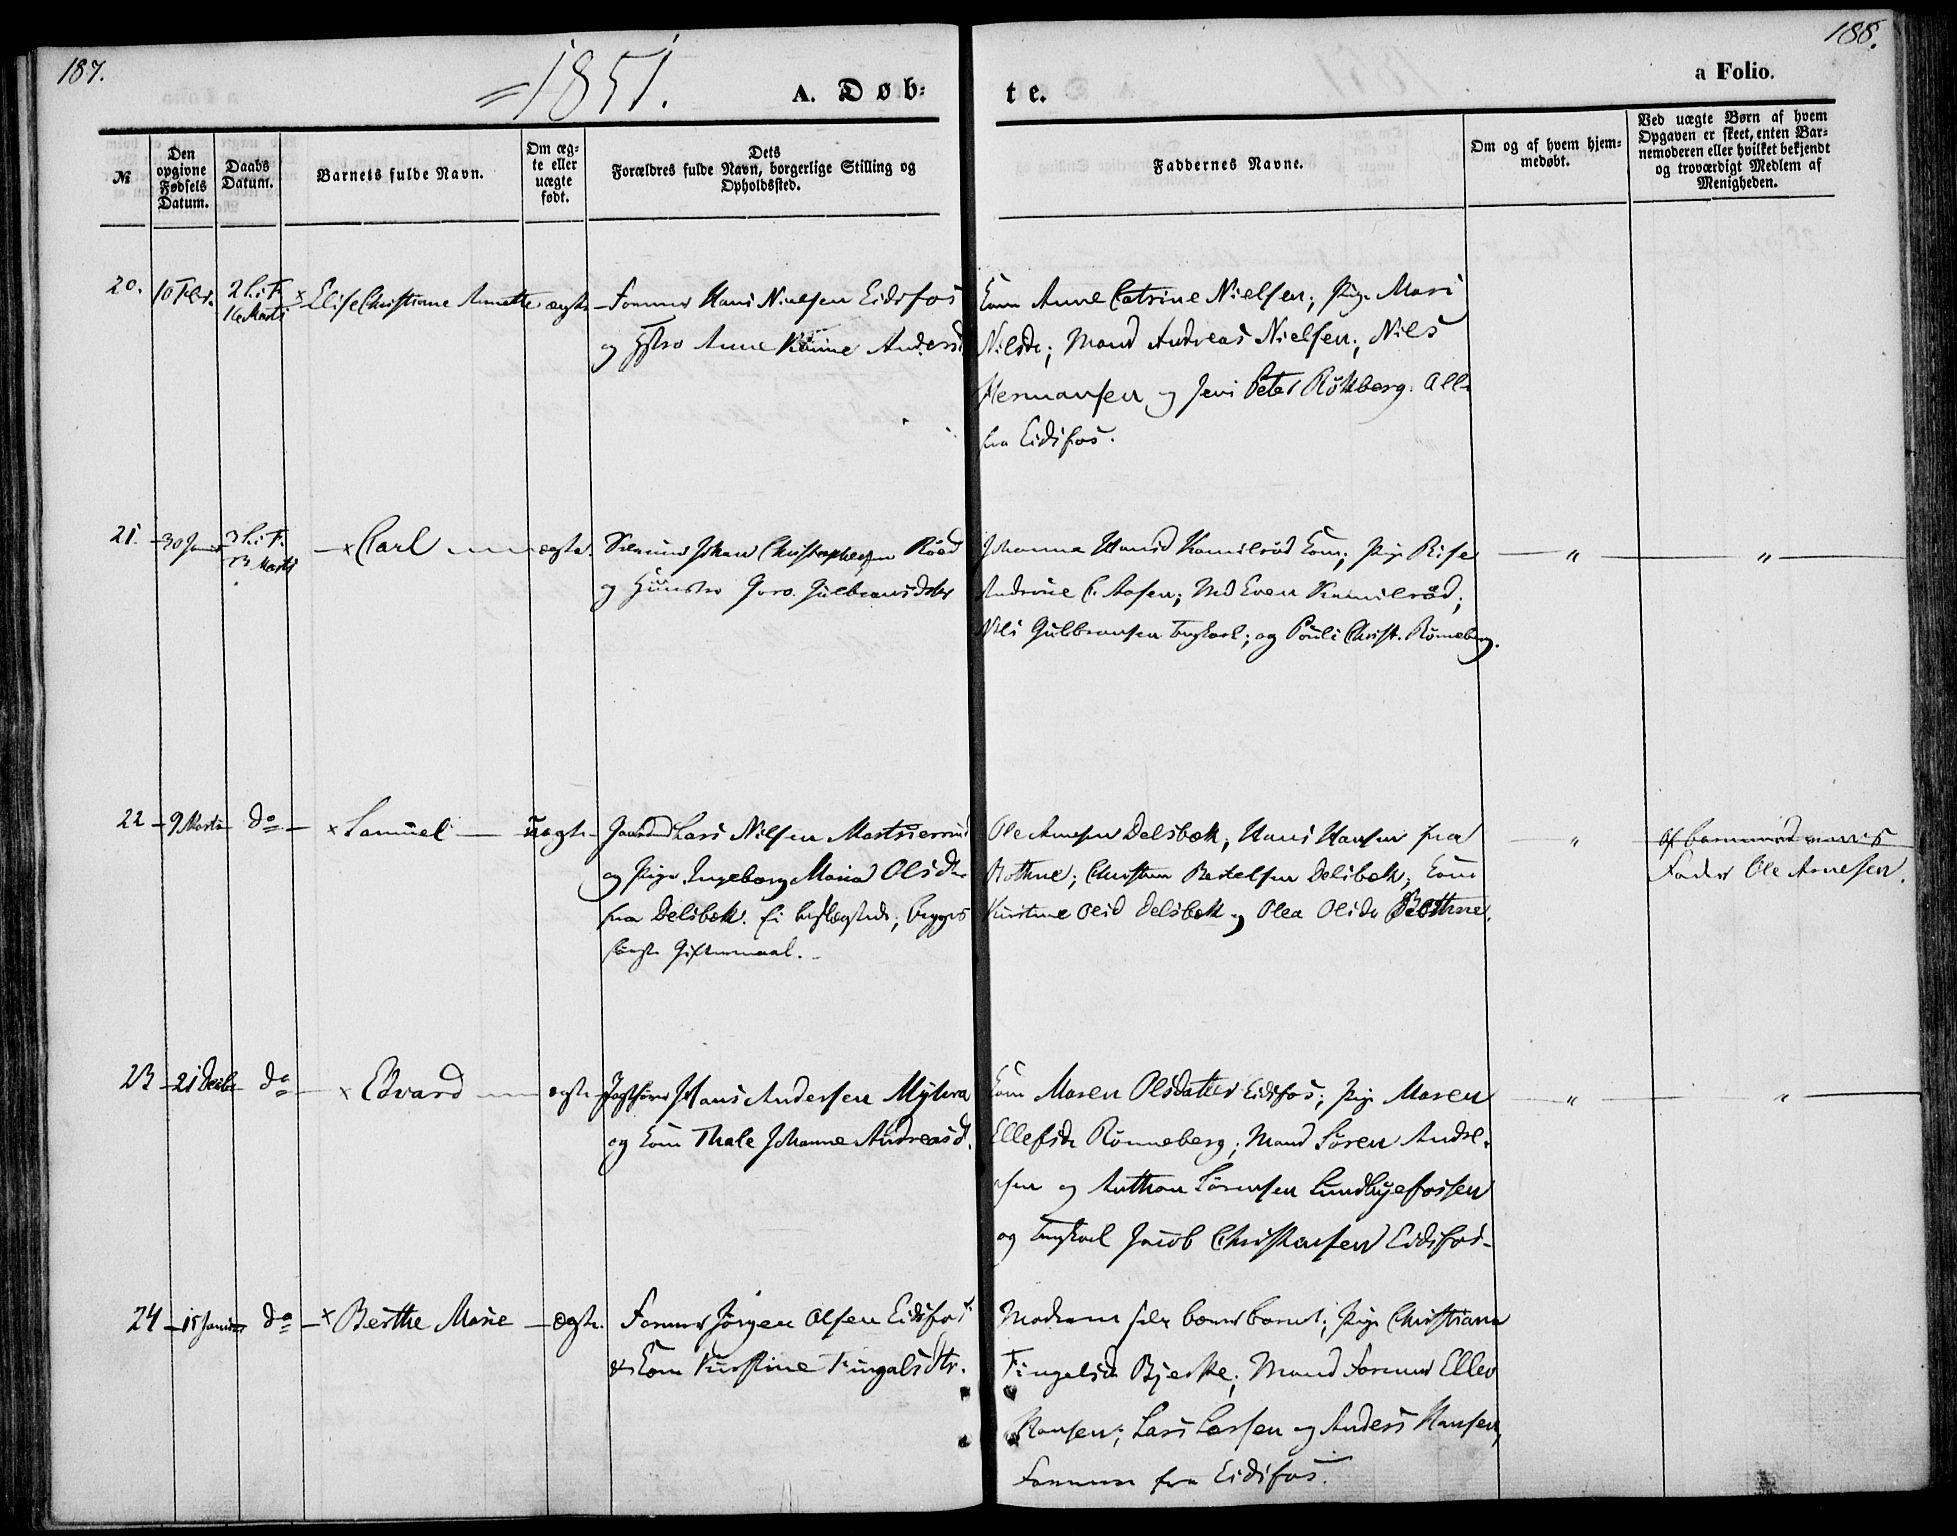 187.
1851.
A. Døb-
te.
188.
a Folio.
№
Den opgivne Fødsels Datum.
Daabs Datum.
Barnets fulde Navn.
Om ægte eller uægte født.
Dets Forældres fulde Navn, borgerlige Stilling og Opholdssted.
Faddernes Navne.
Om og af hvem hjemmedøbt.
Ved uægte Børn af hvem Opgaven er skeet, enten Barnemoderen eller hvilket bekjendt og troværdigt Medlem af Menigheden.
20. 10 Febr. 2 S. i F. 16 Marts × Elise Christiane Annette ægte Former Hans Nielsen Eidsfos
og Hstro Anne Karine Andersd
Kone Anne Catrine Nielsen; Pige Mari
Nilsdr; Mand Andreas Nielsen; Nils
Hermansen og Jens Peter Röhberg. Alle
fra Eidsfos.
21. 30 Janr 3 S. i F. 23 Marts × Carl ægte Johan Christophersen Röed
og Huustro Goro Gulbransdtr
Johanne Hansd Kamilröd Kone; Pige
Andrine C. Aasen; Md Even Kamilröd;
Nils Gulbransen Ungkarl; og Povel Christ. Röneberg.
22 9 Marts do × Samuel uægte Gaardmd Lars Nilsen
og Pige Ingeborg Maria Olsdr
fra Delsbæk. Ei beslægtede; begges
første Giftermaal.
Ole Arnesen Delsbæk, Hans Hansen fra
Bothne; Christian Bertelsen Delsbæk; Kone
Kirstine Olsd Delsbæk og Olea Olsdr Bothne.
af barnemod
Fader Ole Arnesen.
23 21 Decbr do × Edvard ægte Hans Andersen Myhra
og Kone Thale Johanne Andreasd.
Kone Maren Olsdatter Eidsfos; Pige Maren
Ellefsdr Rönneberg; Mand Sören Andre-
sen og Anthon Sörensen Lundbyefossen
og Ungkarl Jacob Christensen Eidsfos.
24 15 Januar do × Berthe Marie ægte Former Jörgen Olsen Eidsfos
& Kone Kirstine Fingalsdtr.
Moderen selv bar barnet; Pige Christiana
Fingalsd Bjerke; Mand Former Ellev
Hansen; Lars Larsen og Anders Hansen,
Formere fra Eidsfos.